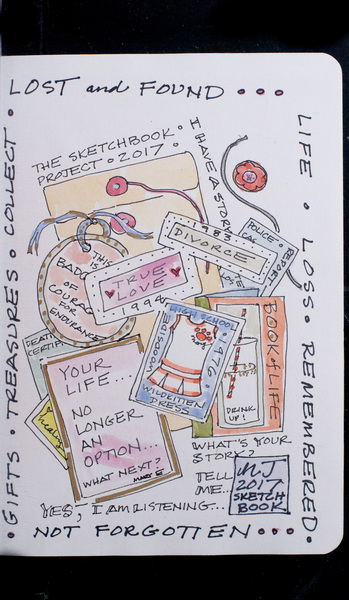 LOST and FOUND • • •
LIFE • LOSS • REMEMBERED •
GIFTS • TREASURES • COLLECT •
NOT FORGOTTEN • • •
THE SKETCHBOOK •
PROJECT • 2017 •
I HAVE A STORY
POLICE •
REPORT
1983
DIVORCE
CASE
THIS IS A
BADGE
OF
COURAGE
FOR
ENDURANCE
TRUE
LOVE
1994
DEATH
CERTIF
HIGH SCHOOL
WOODSIDE
1976
WILDKITTEN
DRESS
BOOK of LIFE
DRINK
UP!
YOUR
LIFE...
NO
LONGER
AN
OPTION...
WHAT NEXT?
MARY E
WHAT'S YOUR
STORY?
TELL
ME...
YES, I AM LISTENING...
MJ
2017
SKETCH
BOOK